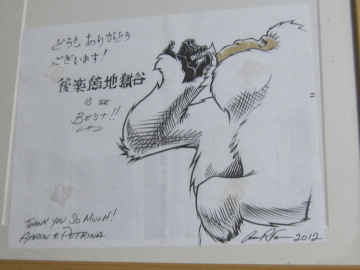 どうも ありがとう
ございます!
後楽館地獄谷
is the
BEST!!
THANK YOU SO MUCH!
AARON & PETRINA
2012